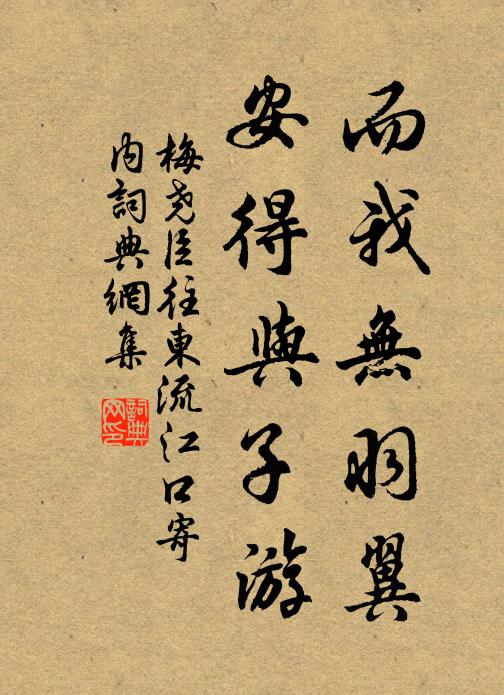 而我無羽翼
安得與子游
梅堯臣往東流江口寄
內詞典網集
詞典
网印